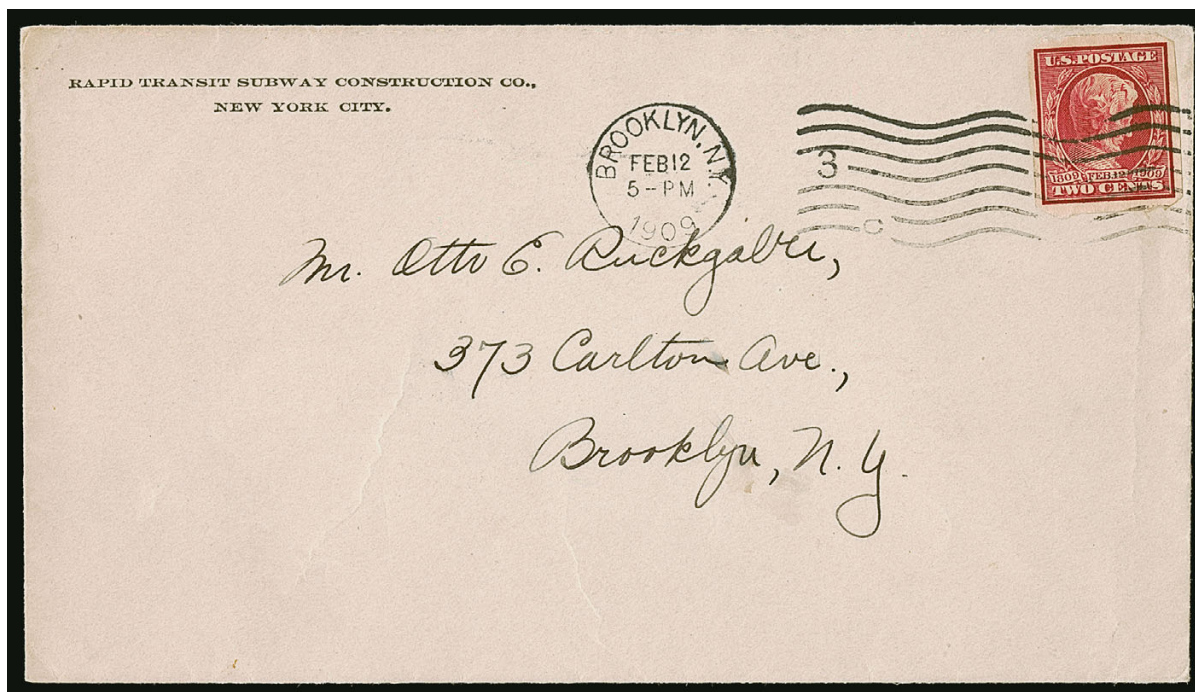 RAPID TRANSIT SUBWAY CONSTRUCTION CO.,
NEW YORK CITY.
BROOKLYN, N.Y.
FEB 12
5-PM
1909
3
C
U.S. POSTAGE
1809 FEB.12 1909
TWO CENTS
Mr. Otto E. Ruckgaber,
373 Carlton Ave.,
Brooklyn, N.Y.